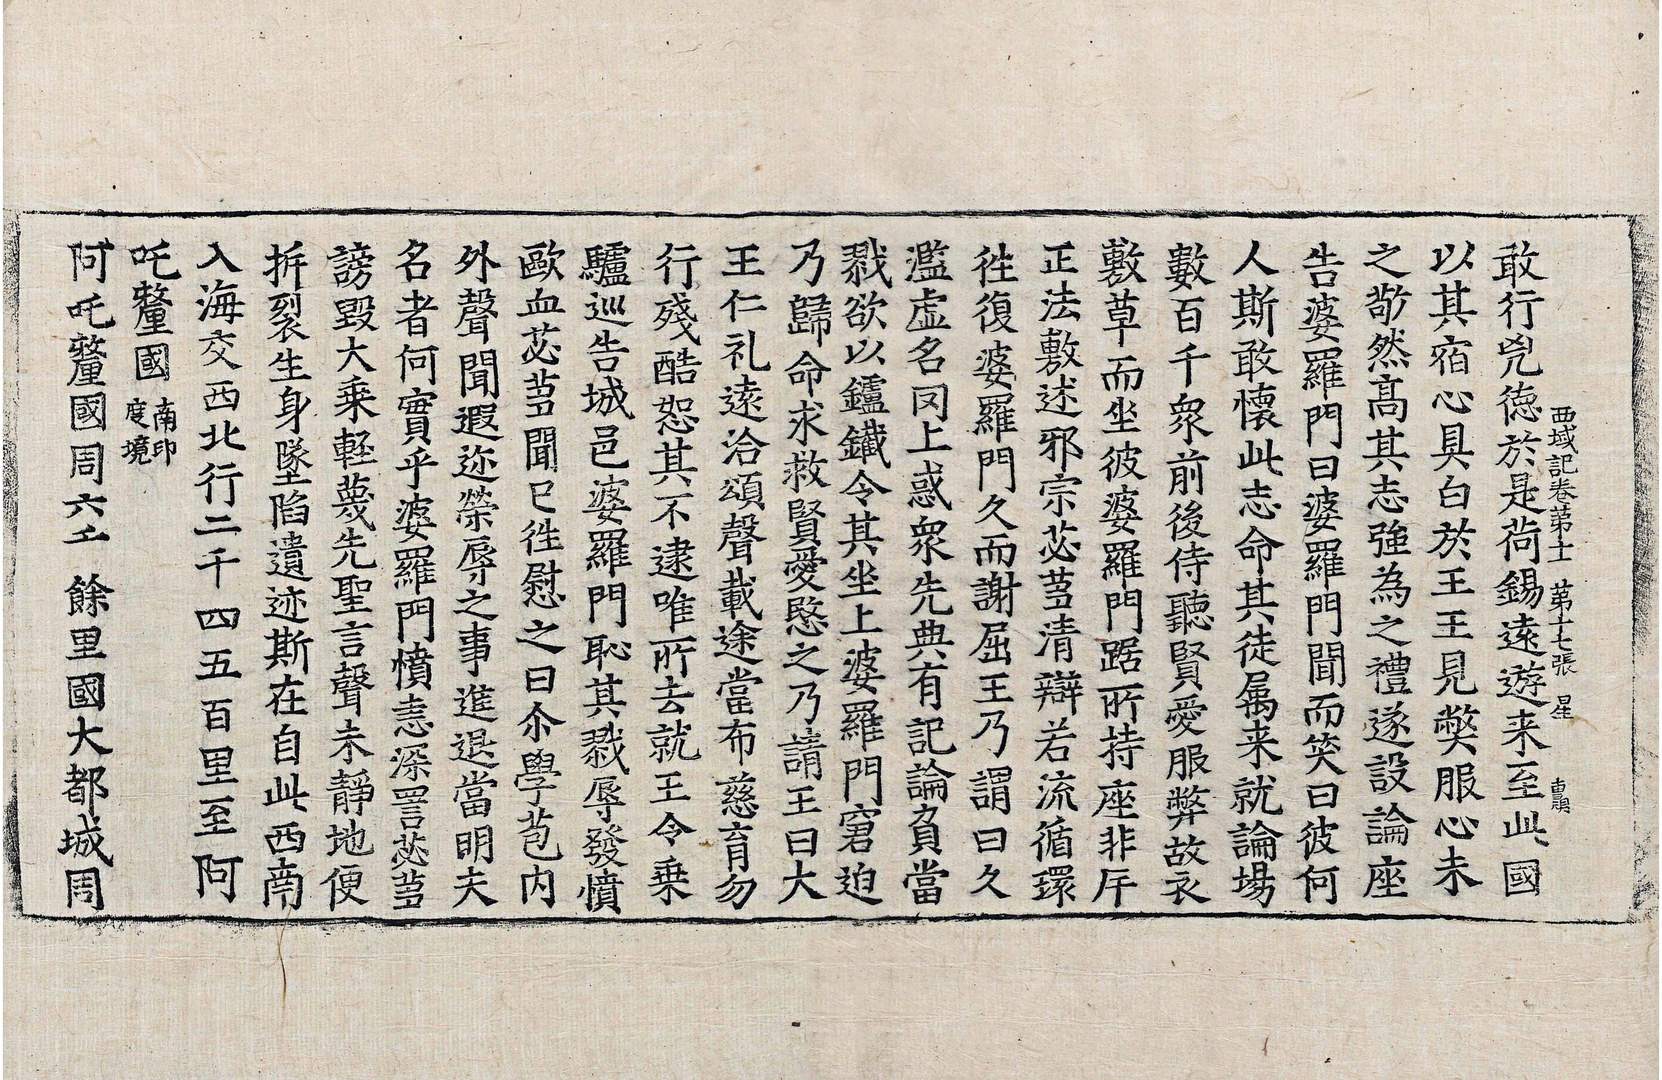 敢行兇德於是荷錫遠遊来至此國
西域記卷第十一 第十七張 星
以其宿心具白於王王見弊服心未
之敬然高其志強為之禮遂設論座
告婆羅門曰婆羅門聞而笑曰彼何
人斯敢懷此志命其徒属来就論場
數百千衆前後侍聽賢愛服弊故衣
敷草而坐彼婆羅門踞所持座非斥
正法敷述邪宗苾芻清辯若流循環
往復婆羅門久而謝屈王乃謂曰久
濫虛名罔上惑衆先典有記論負當
戮欲以鑪鐵令其坐上婆羅門窘迫
乃歸命求救賢愛愍之乃請王曰大
王仁礼遠洽頌聲載途當布慈育勿
行殘酷恕其不逮唯所去就王令乗
驢巡告城邑婆羅門恥其戮辱發憤
歐血苾芻聞已往慰之曰尒學苞内
外聲聞遐迩榮辱之事進退當明夫
名者何實乎婆羅門憤恚深詈苾芻
謗毀大乗軽蔑先聖言聲未靜地便
拆裂生身墜陷遺迹斯在自此西南
入海交西北行二千四五百里至阿
吒釐國南印度境
阿吒釐國周六千餘里國大都城周